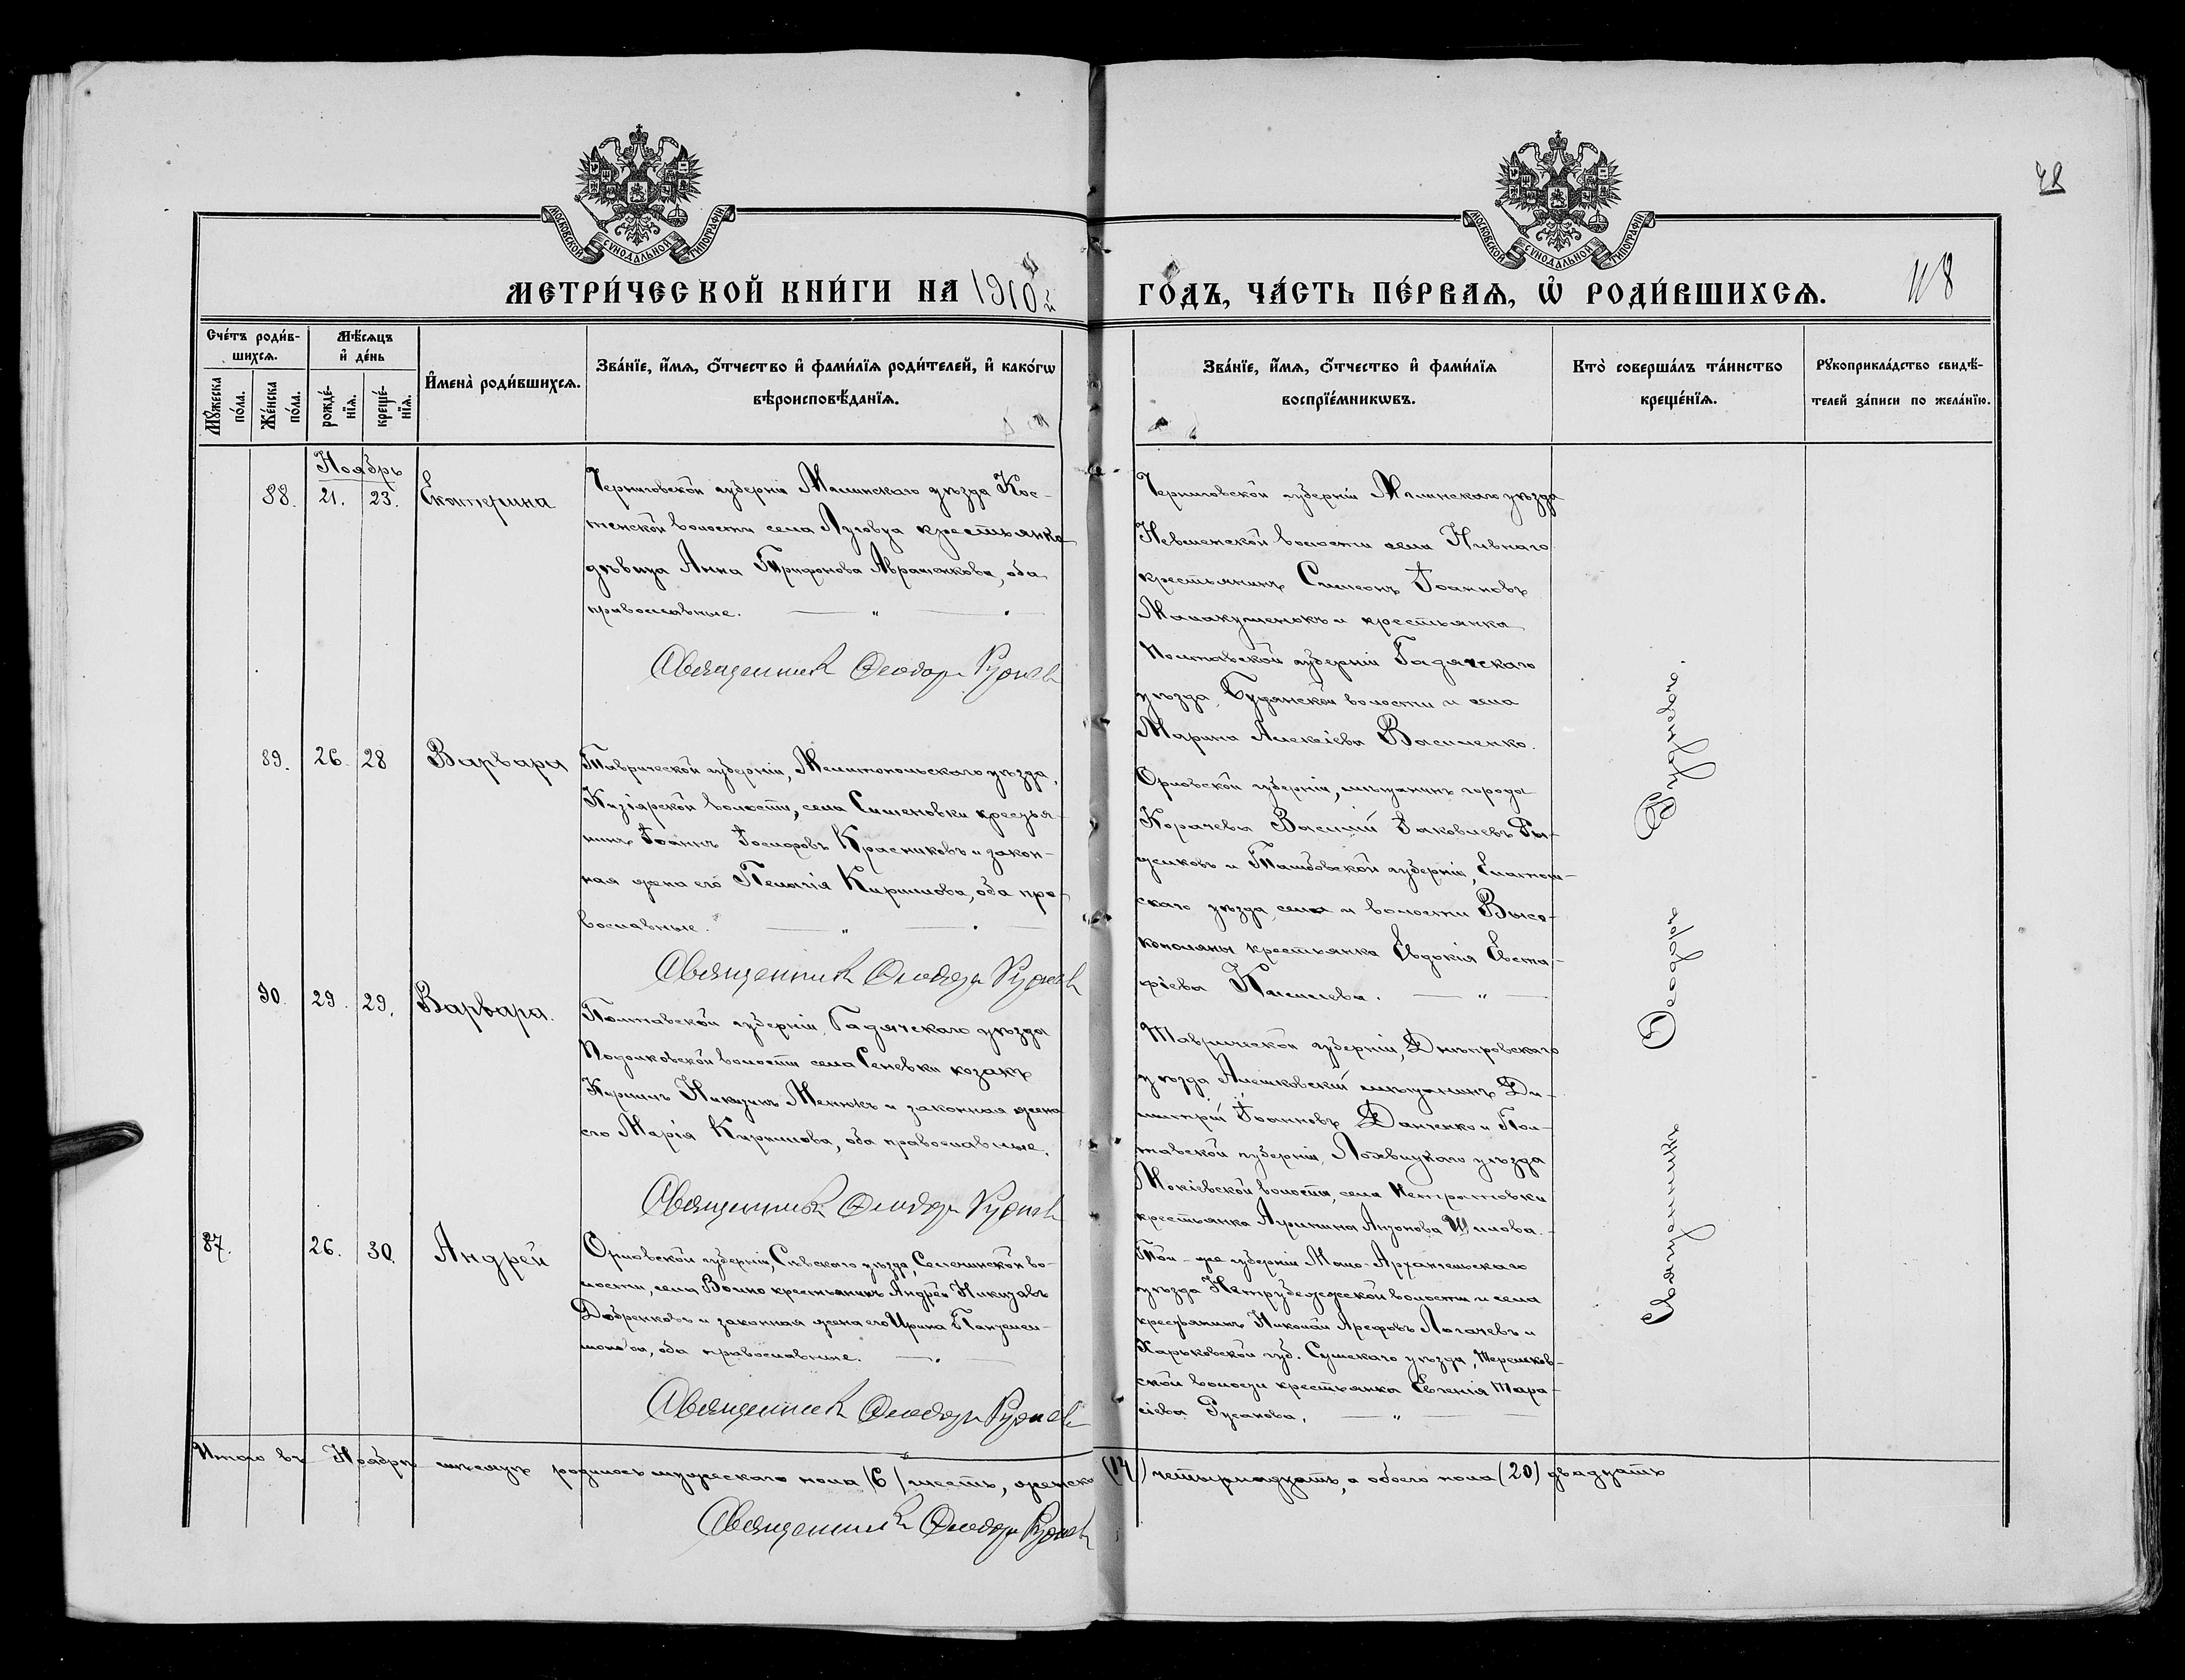 48
МОСКОВСКОЙ СѴНОДАЛЬНОЙ ТИПОГРАФІИ
МОСКОВСКОЙ СѴНОДАЛЬНОЙ ТИПОГРАФІИ
МЕТРИ́ЧЕСКОЙ КНИ́ГИ НА 1910й
ГО́ДЪ, ЧА́СТЬ ПЕ́РВАѦ, Ѡ҆ РОДИ́ВШИХСѦ.
118
Сче́тъ роди́в-
шихсѧ.
Мꙋ́жеска
по́ла.
Же́нска
по́ла.
Мѣ́сѧцъ
и҆ де́нь
рожде́-
нїѧ.
креще́-
нїѧ.
И҆мена̀ роди́вшихсѧ.
Зва́нїе, и҆́мѧ, ѻ҆́тчество и҆ фами́лїѧ роди́телей, и҆ како́гѡ
вѣроисповѣ́данїѧ.
Зва́нїе, и҆́мѧ, ѻ҆́тчество и҆ фами́лїѧ
воспрїе́мникѡвъ.
Кто̀ соверша́лъ та́инство
креще́нїѧ.
Рꙋкоприкла́дство свидѣ́-
телей за́писи по жела́нїю.
Ноябрь
88. 21. 23. Екатерина
Черниговской губерніи Мглинскаго уѣзда Кос-
тенской волости села Луговца крестьянка
дѣвица Анна Трифонова Авраменкова, оба
православные. — „ —
Священникъ Ѳеодоръ Руднев
Черниговской губерніи Мглинскаго уѣзда
волости села Нивнаго
крестьянинъ Симеонъ Іоанновъ
и крестьянка
Полтавской губерніи Гадячскаго
уѣзда, волости и села
Марина Алексіева Василенко.
89. 26. 28 Варвара
Таврической губерніи, Мелитопольскаго уѣзда,
Кизіярской волости, села Семеновки крестья-
нинъ Іоаннъ Іосифовъ Красниковъ и закон-
ная жена его Пелагія Кириллова, оба пра-
вославные. — „ —
Священникъ Ѳеодоръ Руднев
Орловской губерніи, мѣщанинъ города
Карачева Василій Іаковлевъ
и Тамбовской губерніи, Елатом-
скаго уѣзда, села и волости Высо-
кополяны крестьянка Евдокія Евста-
фіева — „ —
90. 29. 29. Варвара.
Полтавской губерніи, Гадячскаго уѣзда
волости села козакъ
Кириллъ Никитинъ и законная жена
его Марія Кириллова, оба православные.
Священникъ Ѳеодоръ Руднев
Таврической губерніи, Днѣпровскаго
уѣзда Алешковскій мѣщанинъ Ди-
митрій Іоанновъ Данченко и Пол-
тавской губерніи, Лохвицкаго уѣзда
волости, села
крестьянка Шилова.
87. 26. 30. Андрей
Орловской губерніи, Сѣвскаго уѣзда, во-
лости, села крестьянинъ Андрей Никитовъ
Добренковъ и законная жена его Ирина Пантелей-
монова, оба православные.
Священникъ Ѳеодоръ Руднев
Той-же губерніи Мало-Архангельскаго
уѣзда волости и села
крестьянинъ Николай Арефовъ Логачевъ и
Харьковской губ. Сумскаго уѣзда,
волости крестьянка Евгенія Тара-
сіева Русанова, — „ —
Священникъ Ѳеодоръ Рудневъ.
Итого въ Ноябрѣ мѣсяцѣ родилось мужескаго пола (6) шесть, женска (14) четырнадцать, а обоего пола (20) двадцать
Священникъ Ѳеодоръ Руднев